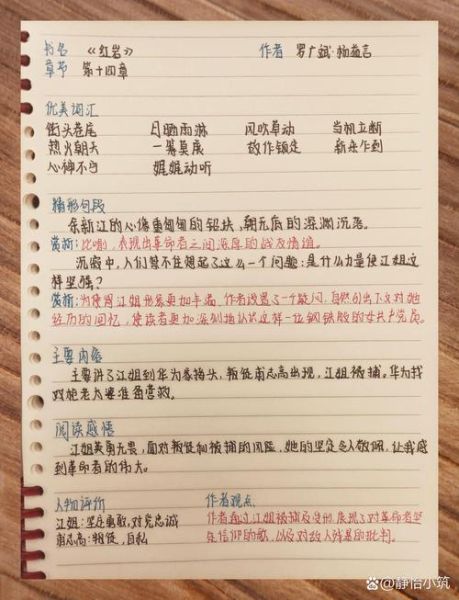 书名 《红岩》 作者 罗广斌 杨益言
章节 第十四章
优美词汇
街头巷尾 日晒雨淋 风吹草动 当机立断
热火朝天 一筹莫展 故作镇定 新来乍到
心神不宁 娓娓动听
精彩句段
余新江的心像重甸甸的铅块，朝无底的深渊沉落。
赏析：比喻，表现出革命者之间深厚的战友情谊。
沉寂中，人们禁不住想起了这么一个问题：是什么力量使江姐这
样坚强？
赏析：为使得江姐形象更加丰满，作者设置了一个疑问，自然引出下文对她
经历的回忆，使读者更加深刻地认识这样一位钢铁般的女共产党员。
主要内容
主要讲了江姐到华为家码头，叛徒甫志高出现，江姐被捕。华为找
双枪老太婆准备营救。
阅读感悟
江姐英勇无畏，面对叛徒和被捕的风险，她的坚定令人敬佩，让我感
到革命者的伟大。
人物评价 作者观点
江姐：坚贞勇敢，对党忠诚 作者通过江姐被捕及受刑，展现了对革命者坚
甫志高：叛徒，自私 贞信仰的歌，以及对敌人残暴的批判。
@静怡小筑